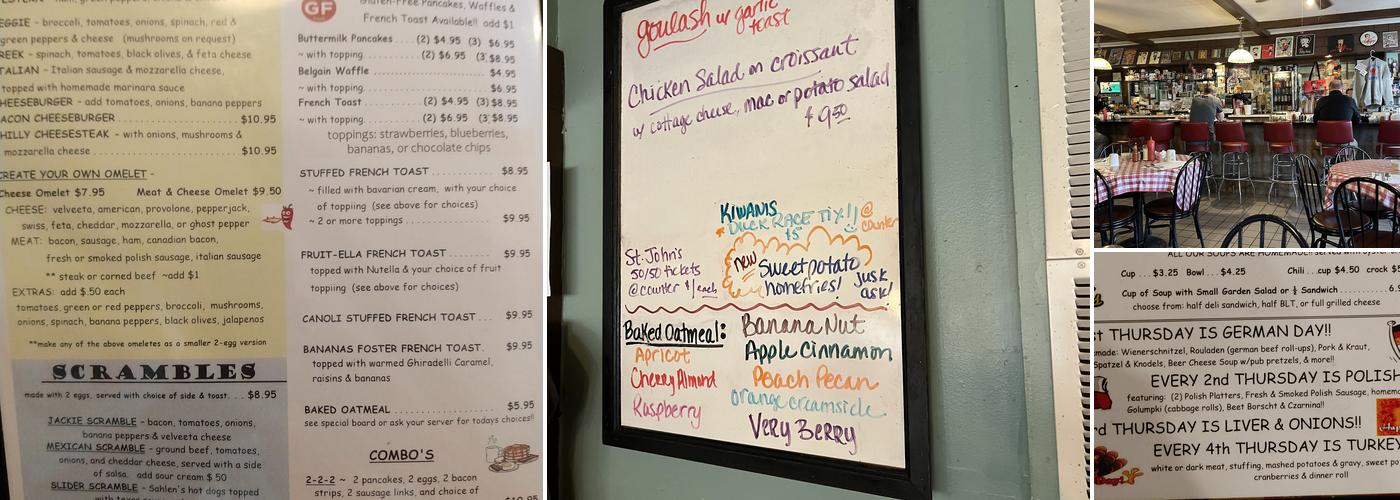 EGGIE - broccoli, tomatoes, onions, spinach, red &
green peppers & cheese (mushrooms on request)
REEK - spinach, tomatoes, black olives, & feta cheese
TALIAN - Italian sausage & mozzarella cheese,
topped with homemade marinara sauce
HEESEBURGER - add tomatoes, onions, banana peppers
ACON CHEESEBURGER $10.95
HILLY CHEESESTEAK - with onions, mushrooms &
mozzarella cheese $10.95
CREATE YOUR OWN OMELET -
Cheese Omelet $7.95 Meat & Cheese Omelet $9.50
CHEESE: velveeta, american, provolone, pepperjack,
swiss, feta, cheddar, mozzarella, or ghost pepper
MEAT: bacon, sausage, ham, canadian bacon,
fresh or smoked polish sausage, italian sausage
** steak or corned beef ~add $1
EXTRAS: add $.50 each
tomatoes, green or red peppers, broccoli, mushrooms,
onions, spinach, banana peppers, black olives, jalapenos
**make any of the above omeletes as a smaller 2-egg version
SCRAMBLES
made with 2 eggs, served with choice of side & toast. . . $8.95
JACKIE SCRAMBLE - bacon, tomatoes, onions,
banana peppers & velveeta cheese
MEXICAN SCRAMBLE - ground beef, tomatoes,
onions, and cheddar cheese, served with a side
of salsa. add sour cream $.50
SLIDER SCRAMBLE - Sahlen's hot dogs topped
GF
Gluten-Free Pancakes, Waffles &
French Toast Available!! add $1
Buttermilk Pancakes . . . . (2) $4.95 (3) $6.95
~ with topping (2) $6.95 (3) $8.95
Belgain Waffle $4.95
~ with topping $6.95
French Toast (2) $4.95 (3) $8.95
~ with topping (2) $6.95 (3) $8.95
toppings: strawberries, blueberries,
bananas, or chocolate chips
STUFFED FRENCH TOAST $8.95
~ filled with bavarian cream, with your choice
of toppiing (see above for choices)
~ 2 or more toppings $9.95
FRUIT-ELLA FRENCH TOAST $9.95
topped with Nutella & your choice of fruit
toppiing (see above for choices)
CANOLI STUFFED FRENCH TOAST . . . $9.95
BANANAS FOSTER FRENCH TOAST. $9.95
topped with warmed Ghiradelli Caramel,
raisins & bananas
BAKED OATMEAL $5.95
see special board or ask your server for todays choices!!
COMBO'S
2-2-2 ~ 2 pancakes, 2 eggs, 2 bacon
strips, 2 sausage links, and choice of
goulash w/ garlic
toast
Chicken Salad on croissant
w/ cottage cheese, mac or potato salad
$9.50
KIWANIS
* DUCK RACE TIX!! @
$5 counter
St. John's
50/50 tickets
@ counter $1/each
new Sweet potato
homefries! just
ask!
Baked Oatmeal:
Apricot
Cherry Almond
Raspberry
Banana Nut
Apple Cinnamon
Peach Pecan
orange creamsicle
Very Berry
Cup . . . $3.25 Bowl . . $4.25 Chili . . .cup $4.50 crock $5
Cup of Soup with Small Garden Salad or ½ Sandwich
choose from: half deli sandwich, half BLT, or full grilled cheese
st THURSDAY IS GERMAN DAY!!
made: Wienerschnitzel, Rouladen (german beef roll-ups), Pork & Kraut,
Spatzel & Knodels, Beer Cheese Soup w/pub pretzels, & more!!
EVERY 2nd THURSDAY IS POLISH
featuring: (2) Polish Platters, Fresh & Smoked Polish Sausage, homema
Golumpki (cabbage rolls), Beet Borscht & Czarnina!!
rd THURSDAY IS LIVER & ONIONS!!
EVERY 4th THURSDAY IS TURKEY
white or dark meat, stuffing, mashed potatoes & gravy, sweet po
cranberries & dinner roll